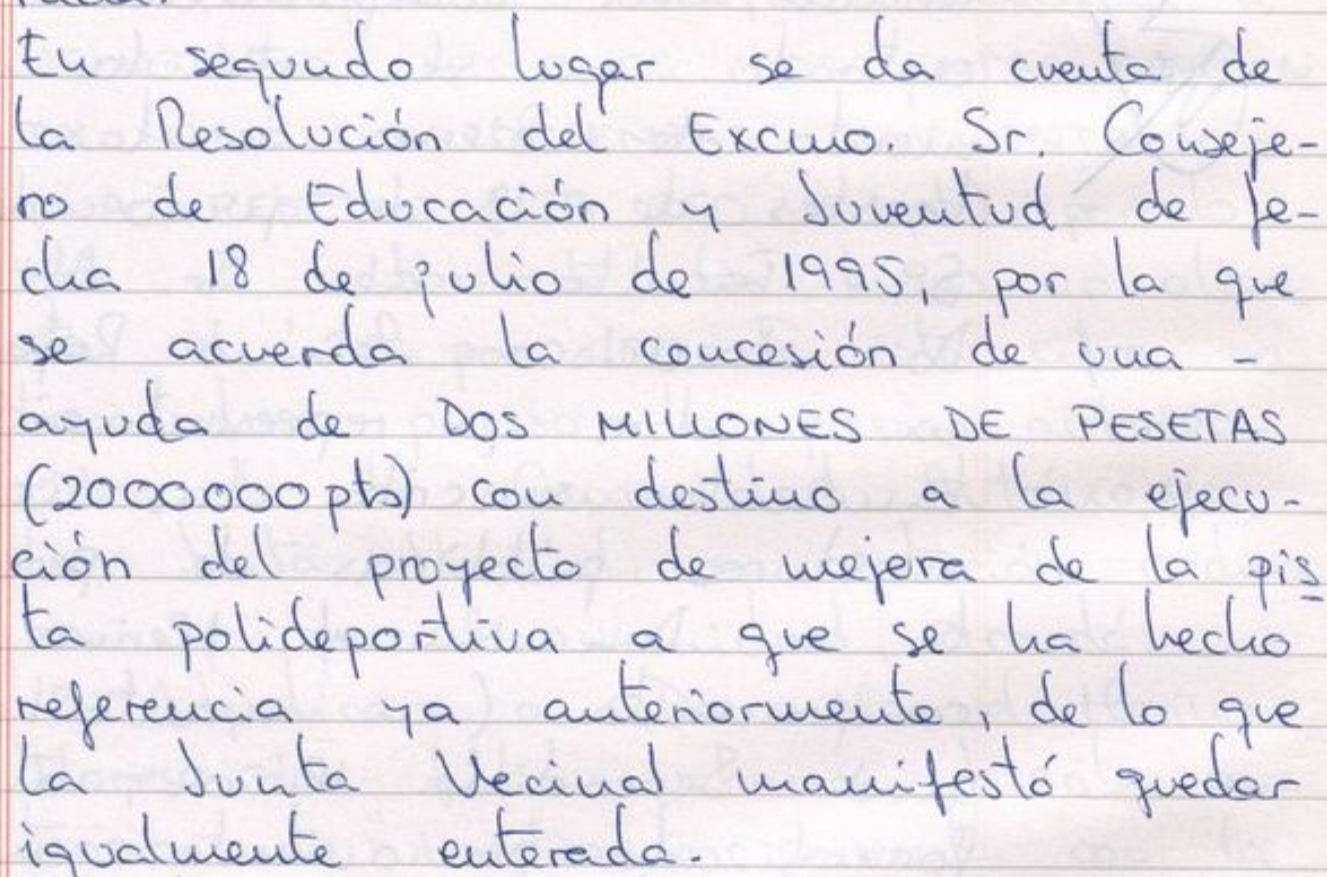 En segundo lugar se da cuenta de
la Resolución del Excmo. Sr. Conseje-
ro de Educación y Juventud de fe-
cha 18 de julio de 1995, por la que
se acuerda la concesión de una -
ayuda de DOS MILLONES DE PESETAS
(2000000 pts) con destino a la ejecu-
ción del proyecto de mejora de la pis
ta polideportiva a que se ha hecho
referencia ya anteriormente, de lo que
la Junta Vecinal manifestó quedar
igualmente enterada.